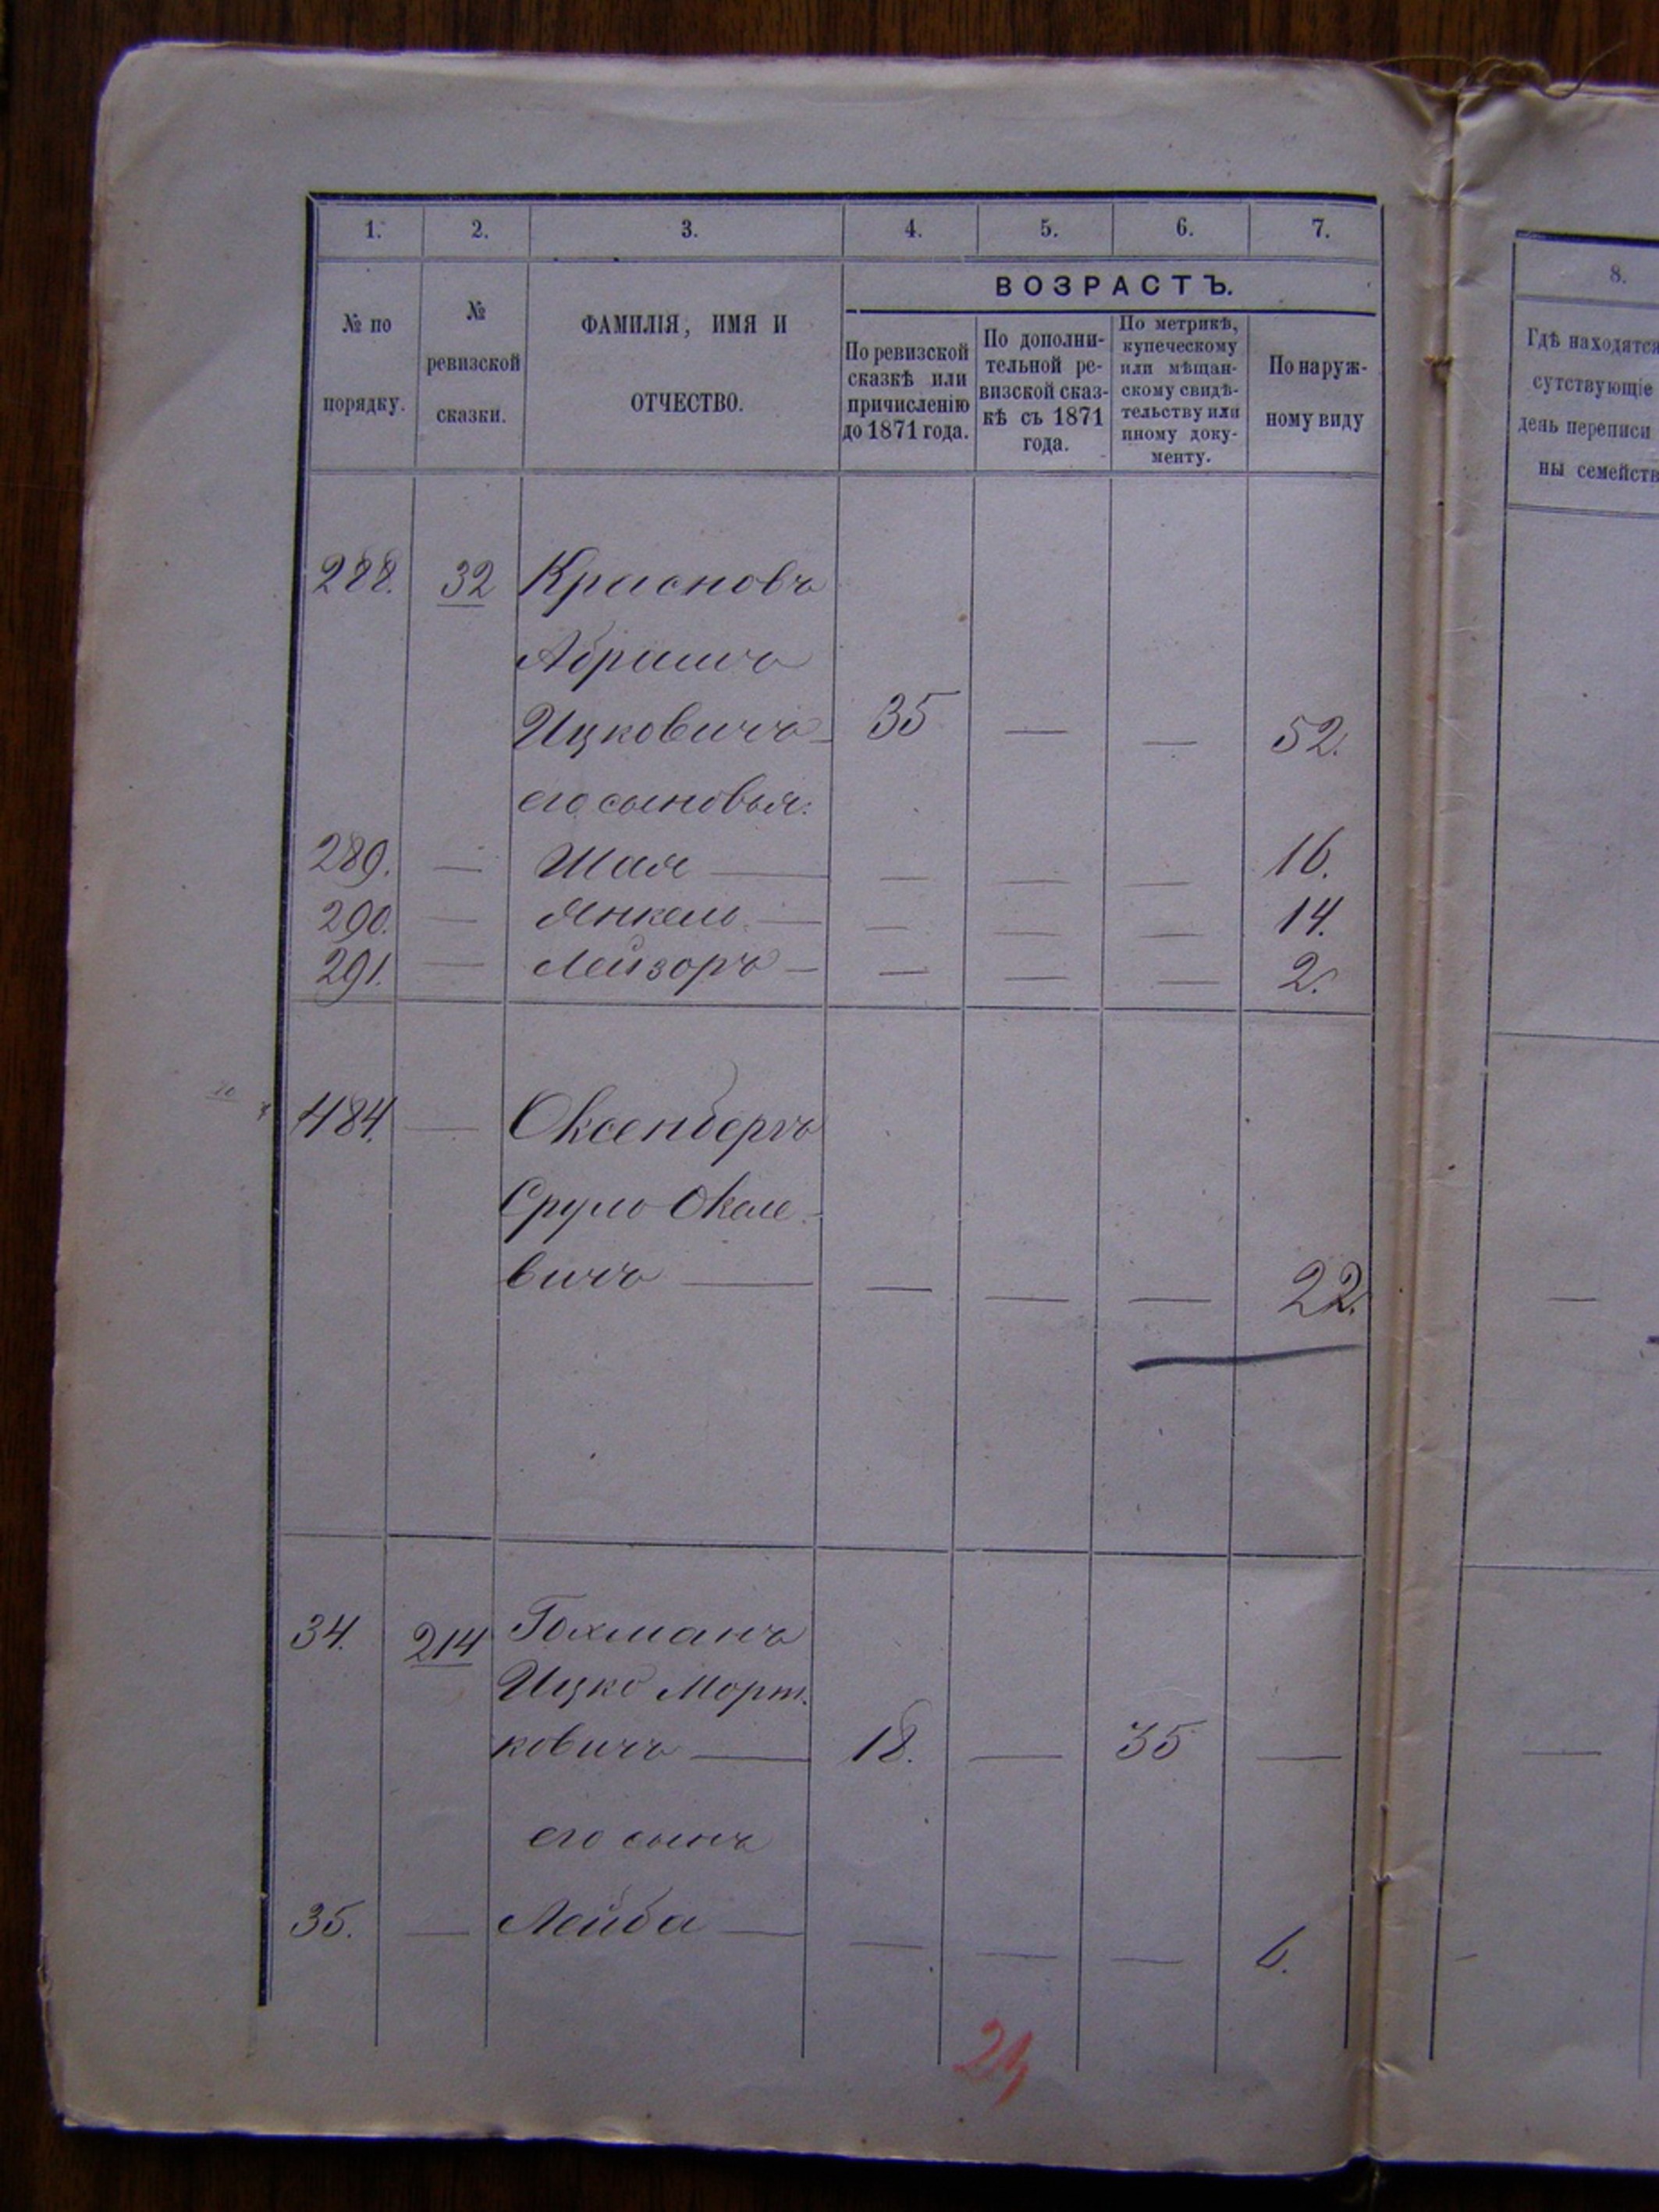 1. 2. 3. 4. 5. 6. 7.
№ по порядку.
№ ревизской сказки.
ФАМИЛІЯ, ИМЯ И ОТЧЕСТВО.
ВОЗРАСТЪ.
По ревизской сказкѣ или причисленію до 1871 года.
По дополни-
тельной ре-
визской сказ-
кѣ съ 1871
года.
По метрикѣ,
купеческому
или мѣщан-
скому свидѣ-
тельству или
иному доку-
менту.
По наруж-
ному виду
288. 32 Красновъ
Абрамъ
Ицковичъ 35 — — 52.
его сыновья:
289. — Шая — — — — 16.
290. — Янкель — — — — 14.
291. — Лейзоръ — — — — 2.
484. — Оксенбергъ
Сруль
вичъ — — — — 22.
34. 214 Гохманъ
Ицко Морт-
ковичъ — 18. — 35 —
его сынъ
35. — Лейба — — — — 6.
24
8.
Гдѣ находятся
сутствующіе
день переписи
ны семейств